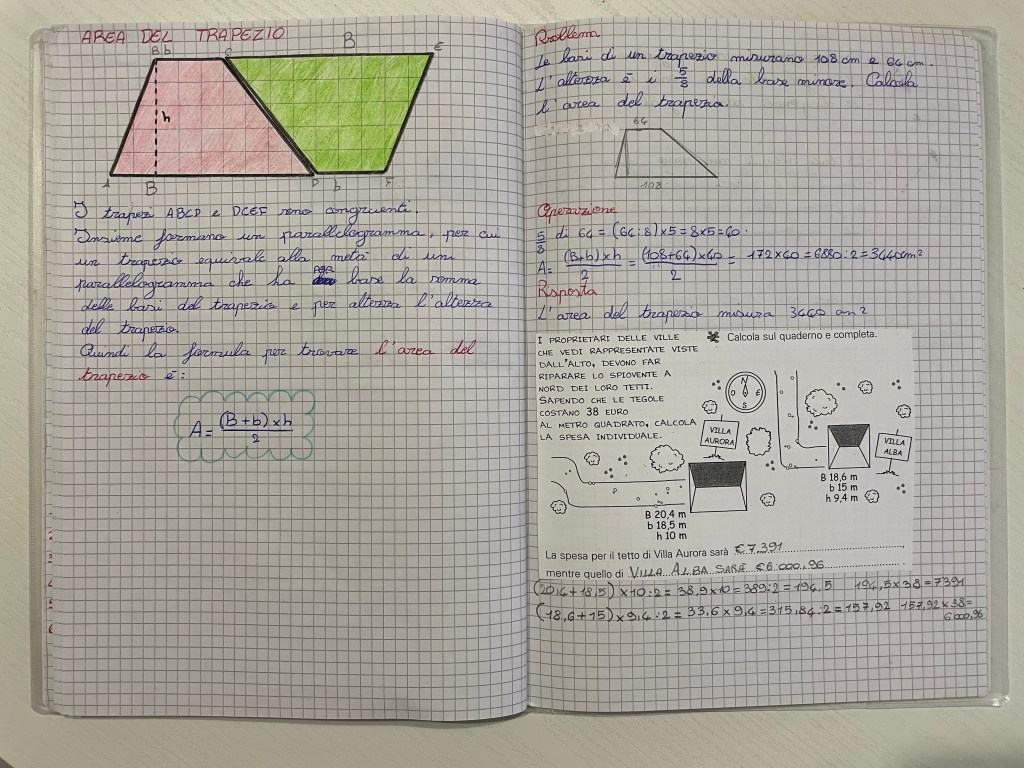 AREA DEL TRAPEZIO
B b C B E
h
A B D b F
I trapezi ABCD e DCEF sono congruenti.
Insieme formano un parallelogramma, per cui
un trapezio equivale alla metà di un
parallelogramma che ha per base la somma
delle basi del trapezio e per altezza l'altezza
del trapezio.
Quindi la formula per trovare l'area del
trapezio è:
A= (B+b)×h
2
Problema
Le basi di un trapezio misurano 108 cm e 64 cm.
L'altezza è i 5/8 della base minore. Calcola
l'area del trapezio.
64
108
Operazione
5/8 di 64 = (64:8)×5=8×5=40.
A= (B+b)×h/2 = (108+64)×40/2 = 172×40=6880:2=3440cm²
Risposta
L'area del trapezio misura 3440 cm²
I PROPRIETARI DELLE VILLE
CHE VEDI RAPPRESENTATE VISTE
DALL'ALTO, DEVONO FAR
RIPARARE LO SPIOVENTE A
NORD DEI LORO TETTI.
SAPENDO CHE LE TEGOLE
COSTANO 38 EURO
AL METRO QUADRATO, CALCOLA
LA SPESA INDIVIDUALE.
Calcola sul quaderno e completa.
N
O E
S
VILLA
AURORA
VILLA
ALBA
B 18,6 m
b 15 m
h 9,4 m
B 20,4 m
b 18,5 m
h 10 m
La spesa per il tetto di Villa Aurora sarà € 7.391
mentre quello di VILLA ALBA SARÀ €6.000,96
(20,4+18,5)×10:2=38,9×10=389:2=194,5 194,5×38=7391
(18,6+15)×9,4:2=33,6×9,4=315,84:2=157,92 157,92×38=
6.000,96